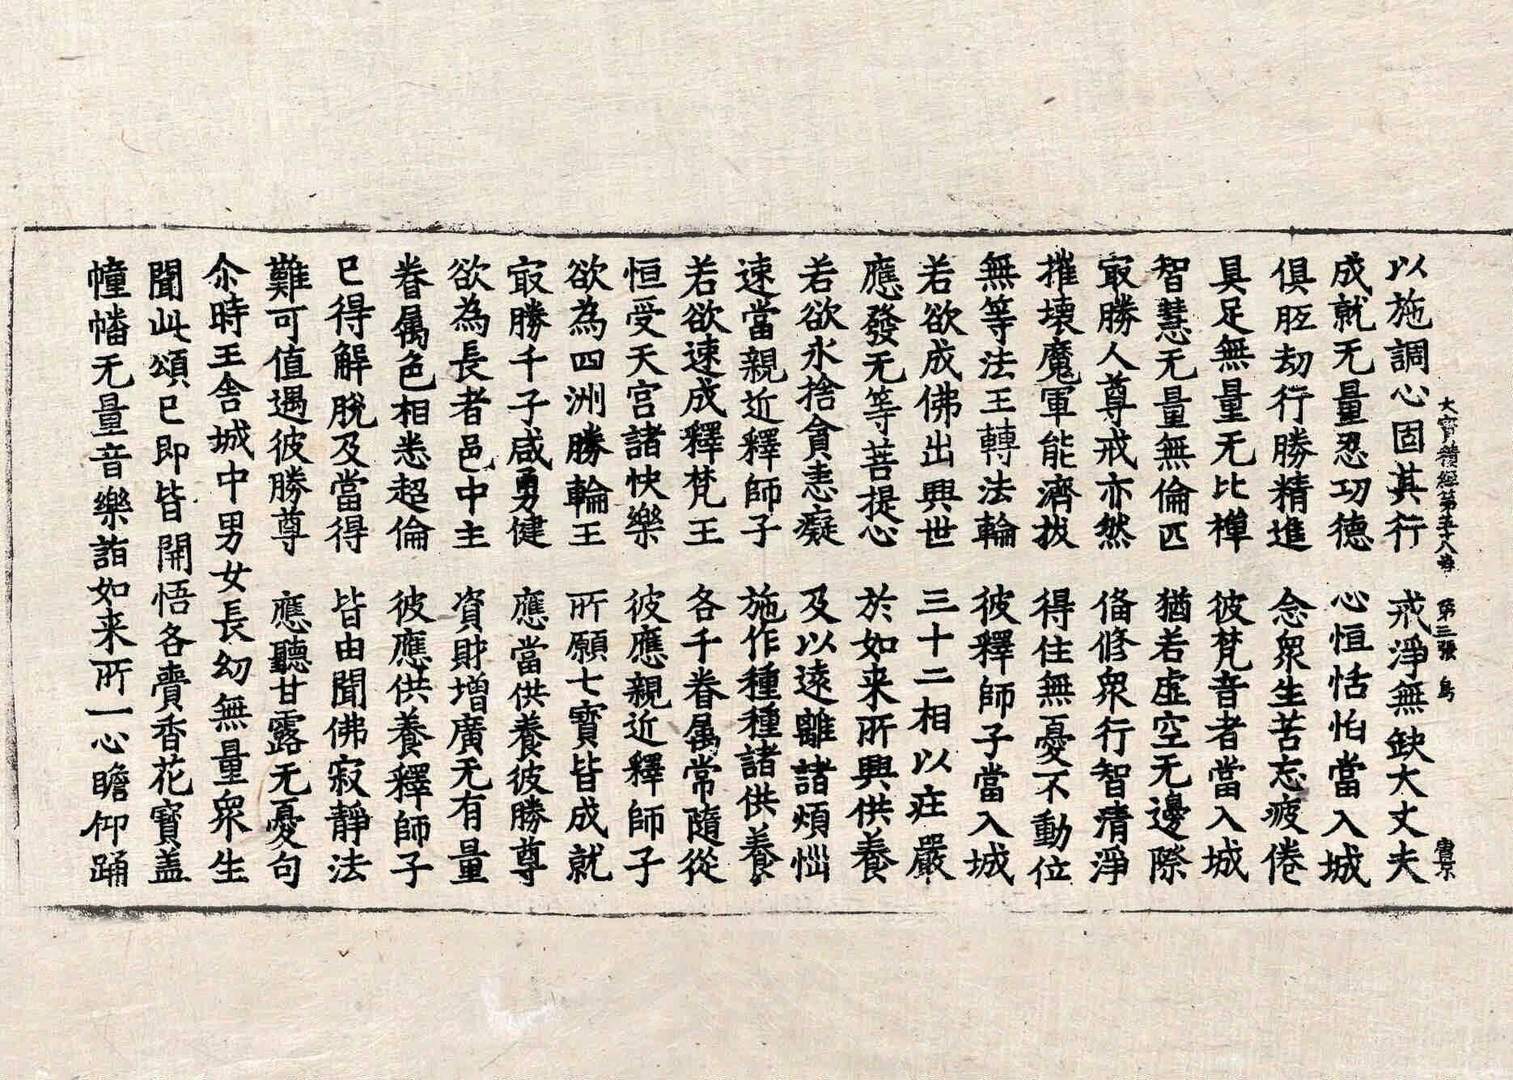 大寶積經第五十八卷　第三張　鳥　唐京
以施調心固其行　戒淨無缺大丈夫
成就无量忍功德　心恒恬怕當入城
俱胝劫行勝精進　念衆生苦忘疲倦
具足無量无比禪　彼梵音者當入城
智慧无量無倫匹　猶若虛空无邊際
㝡勝人尊戒亦然　俻修衆行智清淨
摧壞魔軍能濟拔　得住無憂不動位
無等法王轉法輪　彼釋師子當入城
若欲成佛出興世　三十二相以庄嚴
應發无等菩提心　於如来所興供養
若欲永捨貪恚癡　及以遠離諸煩惱
速當親近釋師子　施作種種諸供養
若欲速成釋梵王　各千眷属常隨從
恒受天宮諸快樂　彼應親近釋師子
欲為四洲勝輪王　所願七寶皆成就
㝡勝千子咸勇健　應當供養彼勝尊
欲為長者邑中主　資財增廣无有量
眷属色相悉超倫　彼應供養釋師子
已得解脫及當得　皆由聞佛寂靜法
難可值遇彼勝尊　應聽甘露无憂句
尒時王舍城中男女長幼無量衆生
聞此頌已即皆開悟各賷香花寶盖
幢幡无量音樂詣如来所一心瞻仰踊